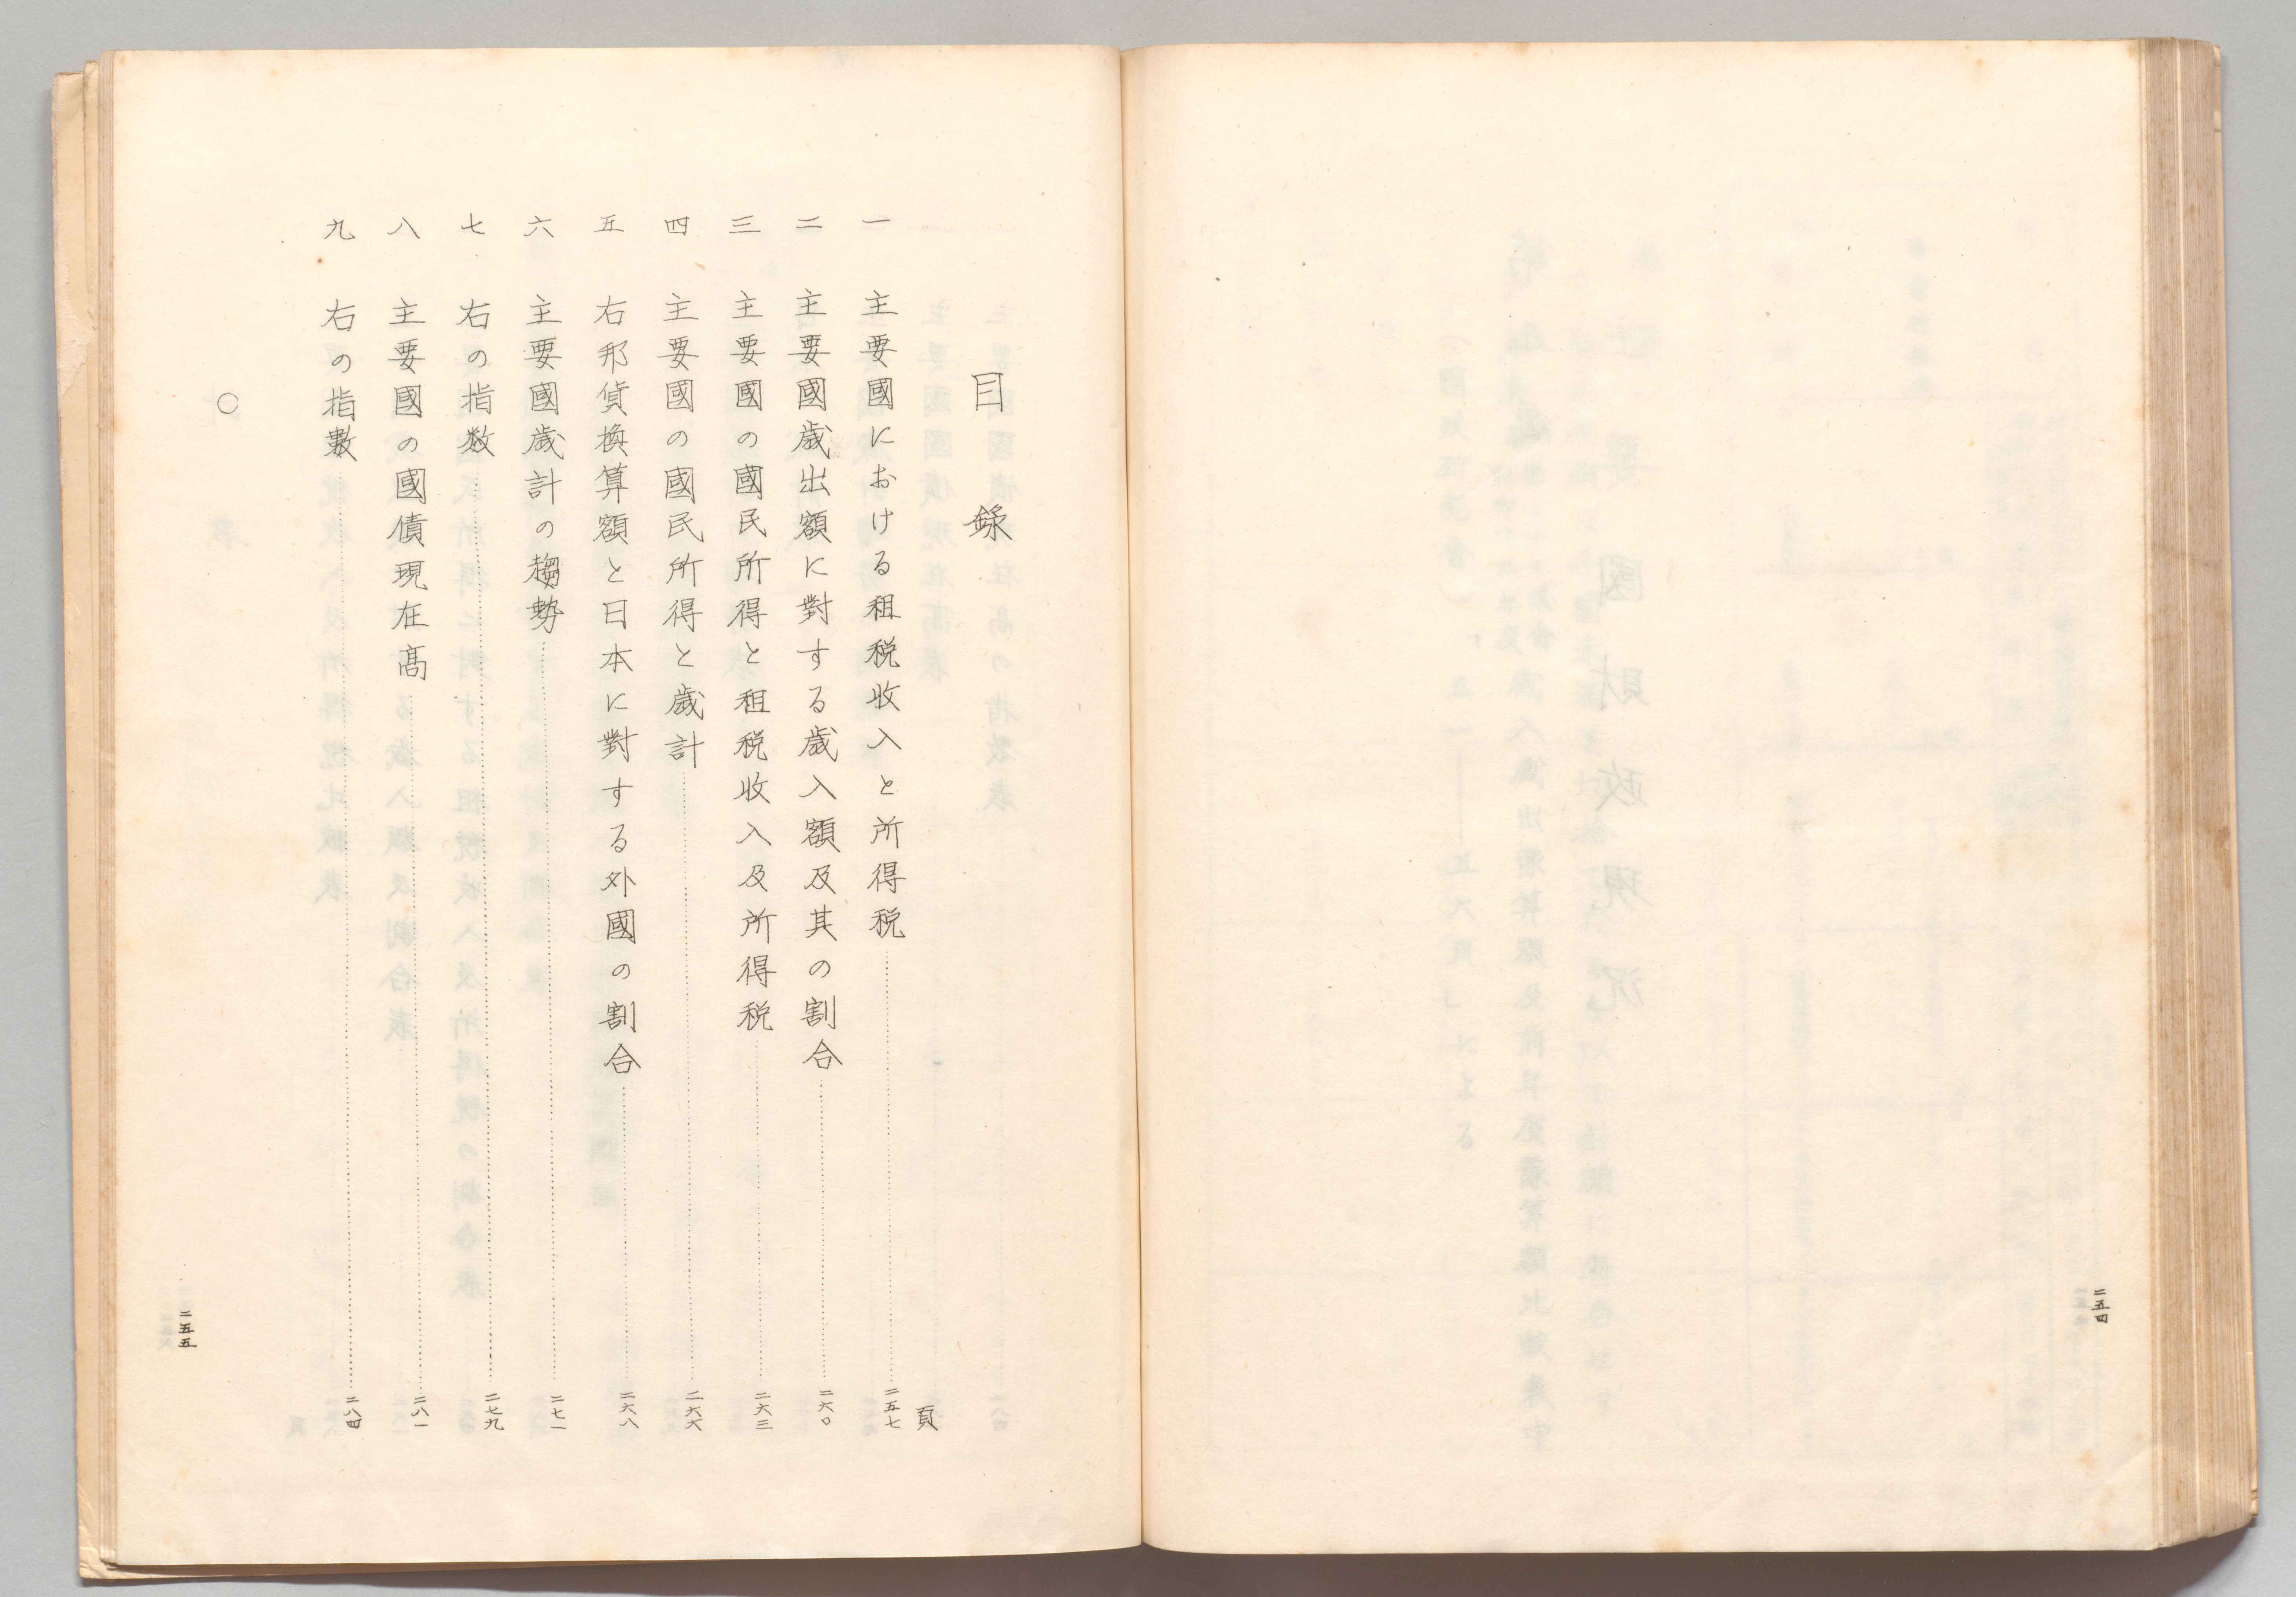 二五四
目錄
頁
一 主要國における租税收入と所得税 二五七
二 主要國歳出額に對する歳入額及其の割合 二六〇
三 主要國の國民所得と租税收入及所得税 二六三
四 主要國の國民所得と歳計 二六六
五 右邦貨換算額と日本に對する外國の割合 二六八
六 主要國歳計の趨勢 二七一
七 右の指数 二七九
八 主要國の國債現在高 二八一
九 右の指數 二八四
○
二五五